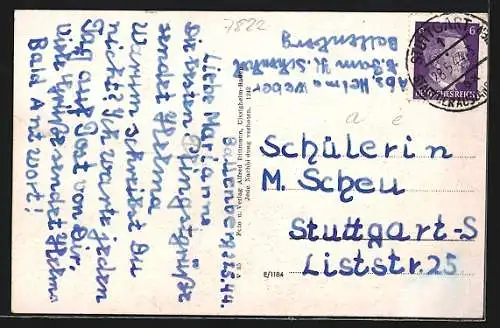 7822
Ballenberg, 27.5.44.
Liebe Marianne
Die besten Pfingstgrüße
sendet Helma
Warum schreibst Du
nicht? Ich warte jeden
Tag auf Post von Dir.
Viele Grüße sendet Helma
Bald Antwort!
Abs. Helma Weber
Ballenberg
Foto u. Verlag Alfred Dittmann, Uissigheim-Baden
Jede Nachbildung verboten. 1242
V 35
E/1184
STUTTGART
6
DEUTSCHES REICH
a e
Schülerin
M. Scheu
Stuttgart-S
Liststr. 25